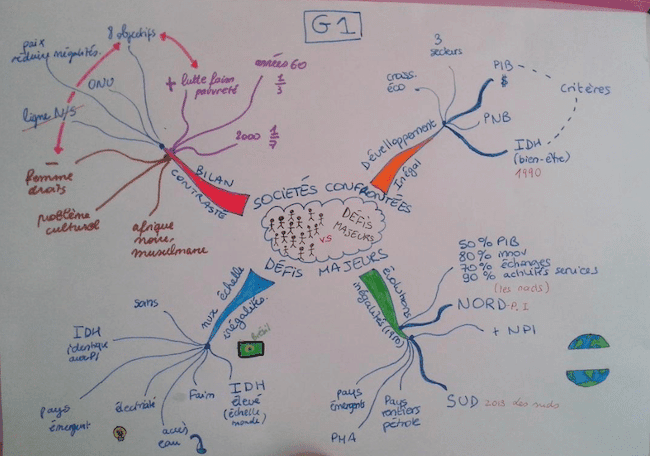 G1
SOCIÉTÉS CONFRONTÉES
DÉFIS MAJEURS
DÉFIS
MAJEURS
VS
BILAN
CONTRASTÉ
8 objectifs
paix
réduire inégalités.
ONU
ligne N/S
+ lutte faim
pauvreté
années 60
1/3
2000 1/7
-
femme
droits
problème
culturel
afrique
noire,
musulmane
Dévelloppement
Inégal
3
secteurs
croiss.
éco
PIB
$
critères
PNB
IDH
(bien-être)
1990
évolutions
inégalités (1980)
50% PIB
80% innov
70% échanges
90% activités services
(les nords)
NORD - P.I
+ NPI
SUD 2013 des suds
Pays
rentiers
pétrole
pays
émergents
PMA
aux échelle
inégalités.
sans
IDH
(identique
aux PI
pays
émergent
électricité
accès
eau
Faim
IDH
élevé
(échelle
monde)
Brésil